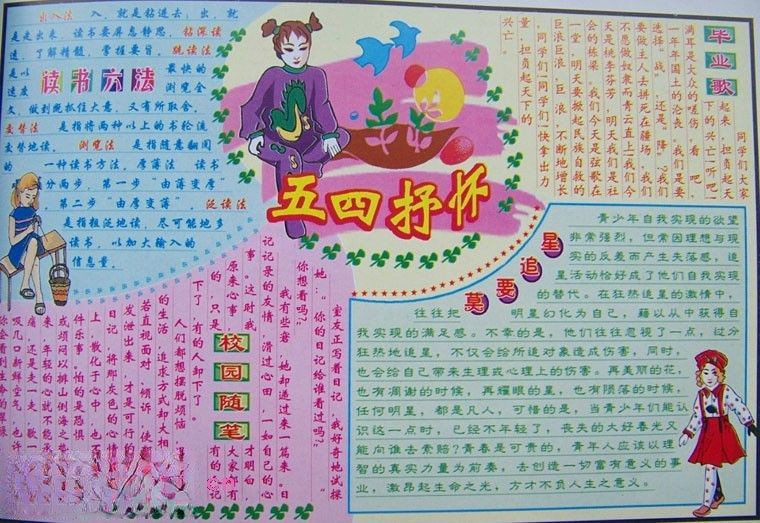 出入法 入，就是钻进去；出，就
是走出来 读书要屏息静思，钻深读
透，了解精髓，掌握要旨。跳读法
是以
读书六法
最快的
速度
浏览全
文，做到既抓住大意，又有所取舍。
交替法 是指将两种以上的书轮流
交替地读。浏览法 是指随意翻阅
的一种读书方法。厚薄法 读书
分两步，第一步“由薄变厚”
第二步“由厚变薄”，泛读法
是指粗泛地读，尽可能地多
读书，以加大输入的
信息量。
五四抒怀
毕业歌
同学们，大家
起来，担负起天
下的兴亡！听吧！
满耳是大众的嗟伤！看吧！
一年年国土的沦丧！我们是要
选择“战”还是“降”？我们
要做主人去拼死在疆场，我们
不愿做奴隶而青云直上！我们今
天是桃李芬芳，明天我们是社
会的栋梁。我们今天是弦歌在
一堂，明天要掀起民族自救的
巨浪！巨浪，巨浪，不断地增长！
同学们！同学们！快拿出力
量，担负起天下的
兴亡！
莫要追星
青少年自我实现的欲望
非常强烈，但常因理想与现
实的反差而产生失落感，追
星活动恰好成了他们自我实现
的替代。在狂热追星的激情中，
往往把 明星幻化为自己，藉以从中获得自
我实现的满足感。不幸的是，他们往往忽视了一点，过分
狂热地追星，不仅会给所追对象造成伤害，同时，
也会给自己带来生理或心理上的伤害。再美丽的花，
也有凋谢的时候，再耀眼的星，也有陨落的时候，
任何明星，都是凡人，可惜的是，当青少年们能认
识这一点时，已经不年轻了，丧失的大好春光又
能向谁去索赔？青春是可贵的，青年人应该以理
智的真实力量为前奏，去创造一切富有意义的事
业，激昂起生命之光，方才不负人生之意义。
校园随笔
室友正写着日记，我好奇地试探
她：“你的日记给谁看过吗？”
你想看吗？”
我有些意，她却递过来一篇来。日
记记录的友情，滑过心田，一如自己的心
事。这时我才明白，
原来心事大家有
的，只是有的记
下了，有的人卸下了。
人们都想摆脱烦恼
的生活，追求方式却大相
若直视面对，倾诉，使
发泄出来，才是可行的
日记，将那灰色的心
上，散化于心中，也
件乐事。怕的是恐惧
或烦闷以排山倒海之
来，年轻的心就不能
痛，还是走一走，歌一
吸几口新鲜空气，也许
你会看到